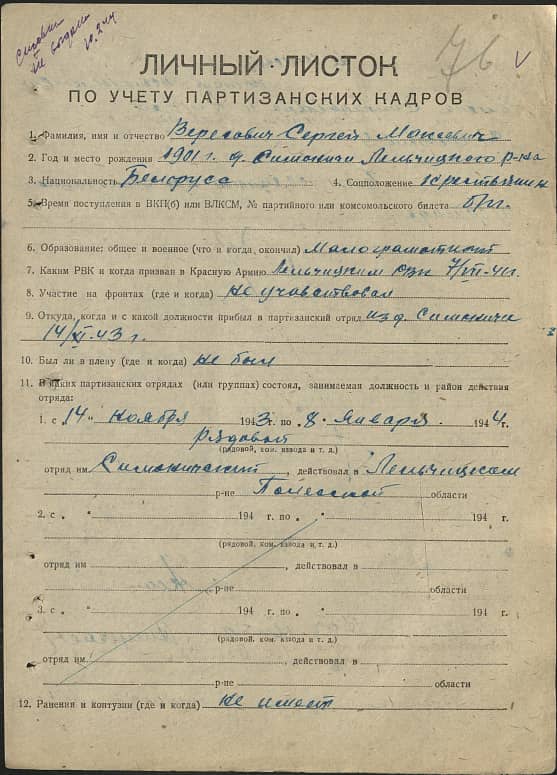 76 V
ЛИЧНЫЙ ЛИСТОК
ПО УЧЕТУ ПАРТИЗАНСКИХ КАДРОВ
1. Фамилия, имя и отчество Верегович Сергей Моисеевич
2. Год и место рождения 1901 г. д. Симоничи Лельчицкого р-на
3. Национальность Белоруса 4. Соцположение Крестьянин
5. Время поступления в ВКП(б) или ВЛКСМ, № партийного или комсомольского билета б/п.
6. Образование: общее и военное (что и когда, окончил) Малограмотный
7. Каким РВК и когда призван в Красную Армию Лельчицким РВК 7/VII-41г.
8. Участие на фронтах (где и когда) не учавствовал
9. Откуда, когда и с какой должности прибыл в партизанский отряд из д. Симоничи
14/XI-43 г.
10. Был ли в плену (где и когда) не был
11. В каких партизанских отрядах (или группах) состоял, занимаемая должность и район действия
отряда:
1. с „14" ноября 1943г. по „8" января 1944г.
рядовой
(рядовой, ком. взвода и т. д.)
отряд им Симонический, действовал в Лельчицком
р-не Полесской области
2. с „ " 194 г. по „ " 194 г.
(рядовой, ком. взвода и т. д.)
отряд им , действовал в
р-не области
3. с „ " 194 г. по „ " 194 г.
(рядовой, ком. взвода и т. д.)
отряд им. , действовал в
р-не области
12. Ранения и контузии (где и когда) не имеет